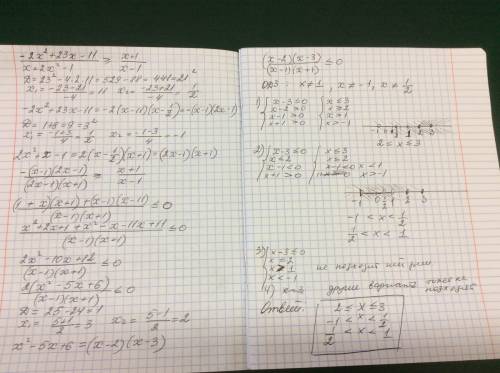 -2x²+23x-11 / x+2x²-1 ≥ x+1 / x-1
D=23²-4·2·11=529-88=441=21²
x₁=-23-21/-4=11 x₂=-23+21/-4=1/2
-2x²+23x-11=-2(x-11)(x-1/2)=-(x-11)(2x-1)
D=1+8=9=3²
x₁=-1+3/4=1/2 x₂=-1-3/4=-1
2x²+x-1=2(x-1/2)(x+1)=(2x-1)(x+1)
-(x-11)(2x-1) / (2x-1)(x+1) ≥ x+1 / x-1
(1+x)(x+1)+(x-1)(x-11) / (x-1)(x+1) ≤0
x²+2x+1+x²-x-11x+11 / (x-1)(x+1) ≤0
2x²-10x+12 / (x-1)(x+1) ≤0
2(x²-5x+6) / (x-1)(x+1) ≤0
D=25-24=1
x₁=5+1/2=3 x₂=5-1/2=2
x²-5x+6=(x-2)(x-3)
(x-2)(x-3) / (x-1)(x+1) ≤0
ОДЗ: x≠1, x≠-1, x≠1/2
1) { x-3≤0 { x≤3
x-2≥0 x≥2
x-1>0 x>1
x+1>0 x>-1
-1 1/2 1 2 3
2≤x≤3
2) { x-3≤0 { x≤3
x≤2 x≤2
x-1<0 x-1<0 x<1
x+1>0 x>-1
-1 1/2 1 2 3
-1<x<1/2
1/2<x<1
3) { x-3≤0
x≥2
x>1
x<-1
не подходит
4) другие варианты тоже не
подходят
Ответ: 2≤x≤3
-1<x<1/2
1/2<x<1